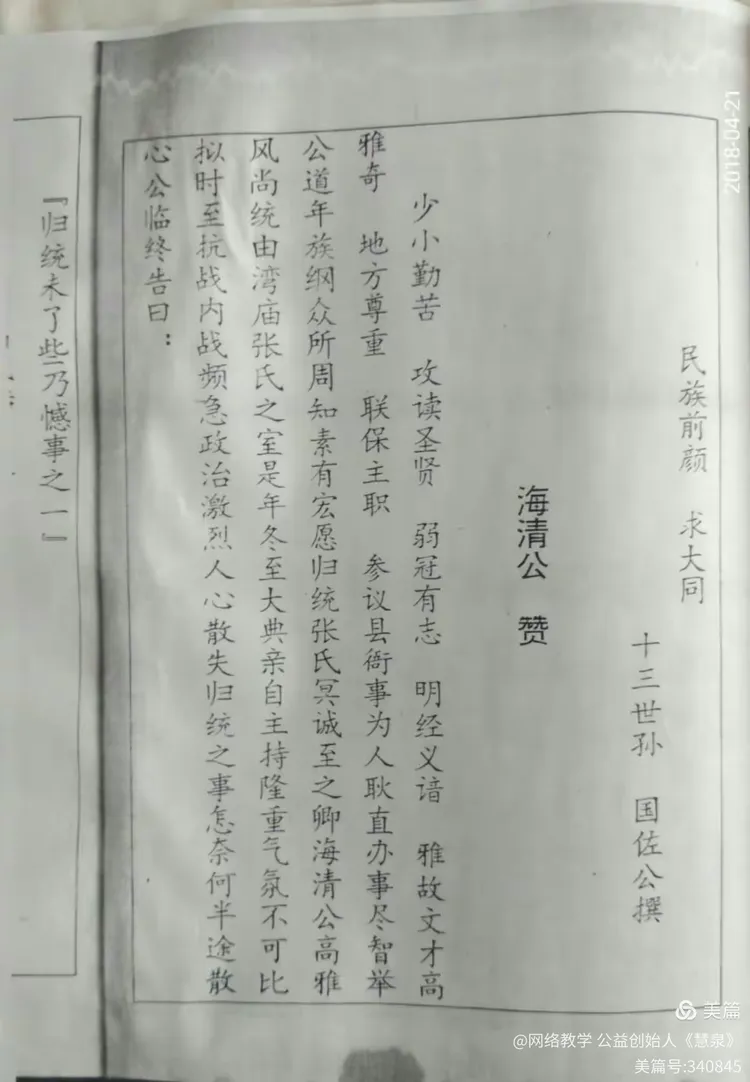 民族前颜 求大同
十三世孙 国佐公撰
海清公 赞
少小勤苦 攻读圣贤 弱冠有志 明经义谙 雅故文才高
雅奇 地方尊重 联保主职 参议县衙事为人耿直办事尽智举
公道年族纲众所周知素有宏愿归统张氏冥诚至之卿海清公高雅
风尚统由湾庙张氏之室是年冬至大典亲自主持隆重气氛不可比
拟时至抗战内战频急政治激烈人心散失归统之事怎奈何半途散
心公临终告曰：
『归统未了些乃憾事之一』
2018-04-21
美篇
@网络教学 公益创始人《慧泉》
美篇号:340845